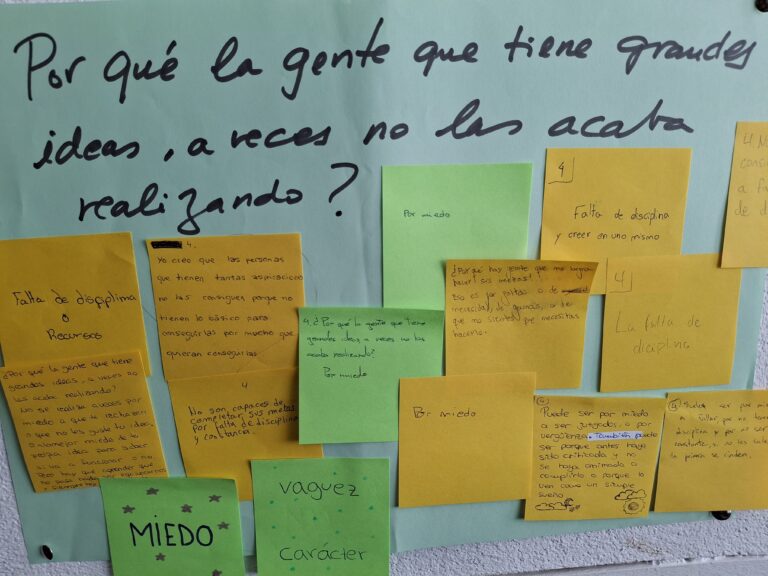 Por qué la gente que tiene grandes
ideas, a veces no las acaba
realizando?
Falta de discplima
o
Recursos
4.
Yo creo que las personas
que tienen tantas aspiraciocio
no las consiguen porque no
tienen lo básico para
conseguirlas por mucho que
quieran conseguirlas
Por miedo
4
Falta de disciplina
y creer en uno mismo
4
a
de d
¿Por qué la gente que tiene
grandes ideas, a veces no
las acaba realizando?
No se realiza aveces por
miedo a que te rechacen
o que no les guste tu idea,
o
idea para saber
si va a funcionar o no
4
No son capaces de
completar sus metas
por falta de disciplina
y constancia.
4. ¿Por qué la gente que tiene
grandes ideas, a veces no las
acaba realizando?
Por miedo
¿Por qué hay gente que no logra
hacer sus metas?
Eso es por faltas o de
necesidad, de ganas, o de
que no sientes que necesitas
hacerlo.
4
La falta de
diciplina
Por miedo
4
Puede ser por miedo
a ser juzgados o por
vergüenza. También puede
ser porque antes haya
sido criticada y no
se haya animado a
cumplirlo o porque lo
ven como un simple
sueño
4
ser por
a fallar, por no
disciplina y por no ser
constante, o no les sale
la primera se rinden.
MIEDO
vaguez
carácter